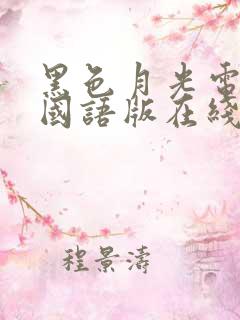 黑色月光電
國語版在綫
程景濤